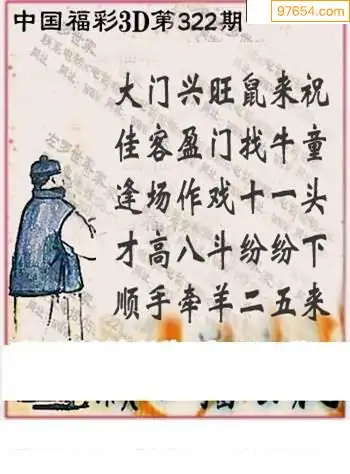 97654.com
中国福彩3D第322期
大门兴旺鼠来祝
佳客盈门找牛童
逢场作戏十一头
才高八斗纷纷下
顺手牵羊二五来